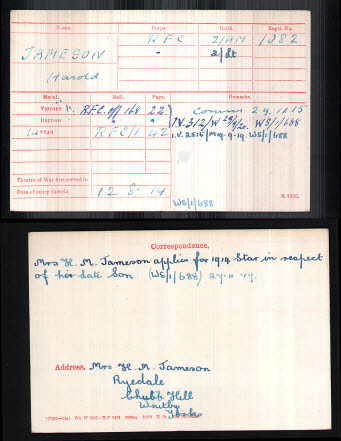 Name. Corps. Rank. Regtl. No.
JAMESON R F C 2/AM 1082
" 2/Lt
Harold
Medal. Roll. Page. Remarks.
VICTORY R.F.C. Off 168 22 Comm 29.11.15
BRITISH " " I.V. 312/W 29/4/20. WS/1/688
14 STAR R F C/1 42 I.V. 8516/M 19-9-19. WS/1/688
Theatre of War first served in
Date of entry therein 12. 8. 14
K 1380.
WS/1/688
Correspondence.
Mrs H. M. Jameson applies for 1914 Star in respect
of her late Son (WS/1/688) 27.11.17.
Address, Mrs H. M. Jameson
Ryedale
Chubb Hill
Whitby
Yorks